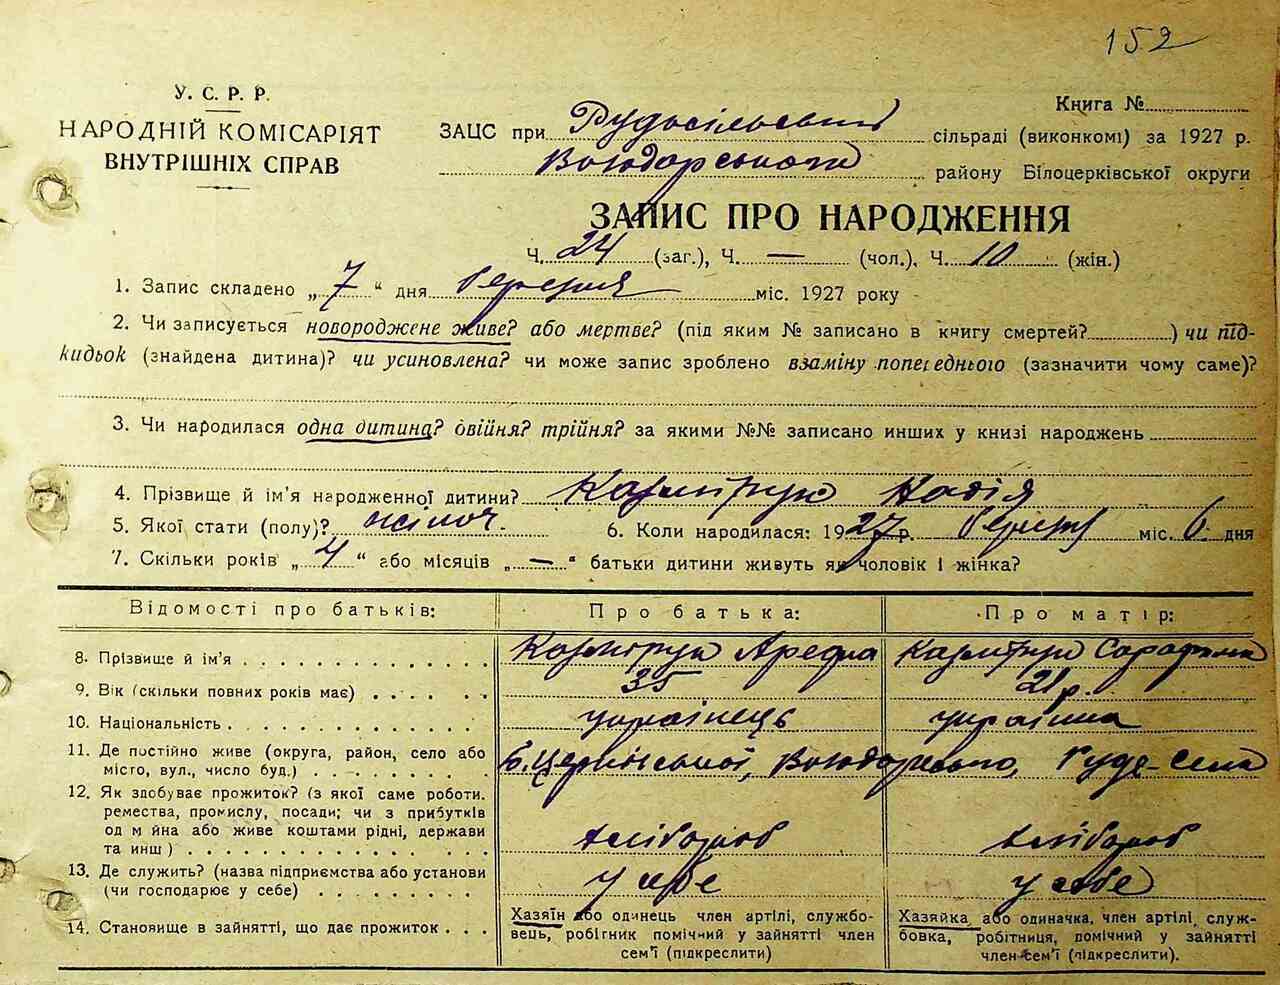 152
У. С. Р. Р.
НАРОДНІЙ КОМІСАРІЯТ
ВНУТРІШНІХ СПРАВ
Книга №
ЗАЦС при Рудосільський сільраді (виконкомі) за 1927 р.
району Білоцерківської округи
ЗАПИС ПРО НАРОДЖЕННЯ
Ч. 24 (заг.), Ч. — (чол.), Ч. 10 (жін.)
1. Запис складено „ 7 “ дня березня міс. 1927 року
2. Чи записується новороджене живе? або мертве? (під яким № записано в книгу смертей? ) чи під-
кидьок (знайдена дитина)? чи усиновлена? чи може запис зроблено взаміну попереднього (зазначити чому саме)?
3. Чи народилася одна дитина? двійня? трійня? за якими №№ записано инших у книзі народжень
4. Прізвище й ім'я народженної дитини? Надія
5. Якої стати (полу)? жіноч. 6. Коли народилася: 1927 р. міс. 6 дня
7. Скільки років „ 4 “ або місяців „ — “ батьки дитини живуть як чоловік і жінка?
Відомості про батьків: Про батька: Про матір:
8. Прізвище й ім'я
9. Вік (скільки повних років має) 35 21 р.
10. Національність українець українка
11. Де постійно живе (округа, район, село або
місто, вул., число буд.) Б.Церківської, Руде-Село
12. Як здобуває прожиток? (з якої саме роботи,
ремества, промислу, посади; чи з прибутків
од майна або живе коштами рідні, держави
та инш) хлібороб хлібороб
13. Де служить? (назва підприємства або установи
(чи господарює у себе) у себе у себе
14. Становище в зайнятті, що дає прожиток
Хазяїн або одинець член артілі, службо-
вець, робітник помічний у зайнятті член
сем'ї (підкреслити)
Хазяйка, або одиначка, член артілі, служ-
бовка, робітниця, помічний у зайнятті
член сем'ї (підкреслити).